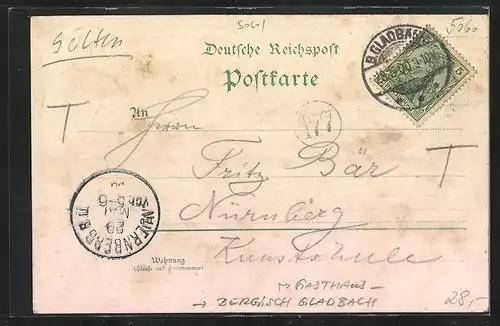 5060/
5060
Sölken
Deutsche Reichspost
Postkarte
B.GLADBACH
5
T
An
Herrn
177
Fritz Bär
T
Nürnberg
NUERNBERG 8
29
MAI
Vor. 5-6
Kunstschule
Wohnung
(Straße und Hausnummer)
→ GASTHAUS -
→ BERGISCH GLADBACH
28,-